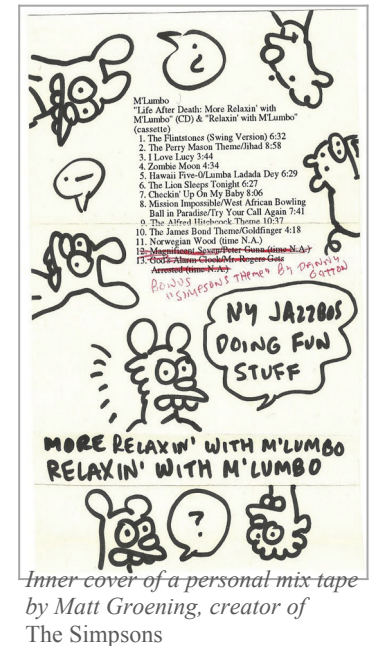 M'Lumbo
"Life After Death: More Relaxin' with
M'Lumbo" (CD) & "Relaxin' with M'Lumbo"
(cassette)
1. The Flintstones (Swing Version) 6:32
2. The Perry Mason Theme/Jihad 8:58
3. I Love Lucy 3:44
4. Zombie Moon 4:34
5. Hawaii Five-0/Lumba Ladada Dey 6:29
6. The Lion Sleeps Tonight 6:27
7. Checkin' Up On My Baby 8:06
8. Mission Impossible/West African Bowling
Ball in Paradise/Try Your Call Again 7:41
9. The Alfred Hitchcock Theme 10:37
10. The James Bond Theme/Goldfinger 4:18
11. Norwegian Wood (time N.A.)
12. Magnificent Seven/Peter Gunn (time N.A.)
13. God's Alarm Clock/Mr. Rogers Gets
Arrested (time N.A.)
BONUS
"SIMPSONS THEME" BY DANNY
GATTON
NY JAZZBOS
DOING FUN
STUFF
MORE RELAXIN' WITH M'LUMBO
RELAXIN' WITH M'LUMBO
?
Inner cover of a personal mix tape
by Matt Groening, creator of
The Simpsons